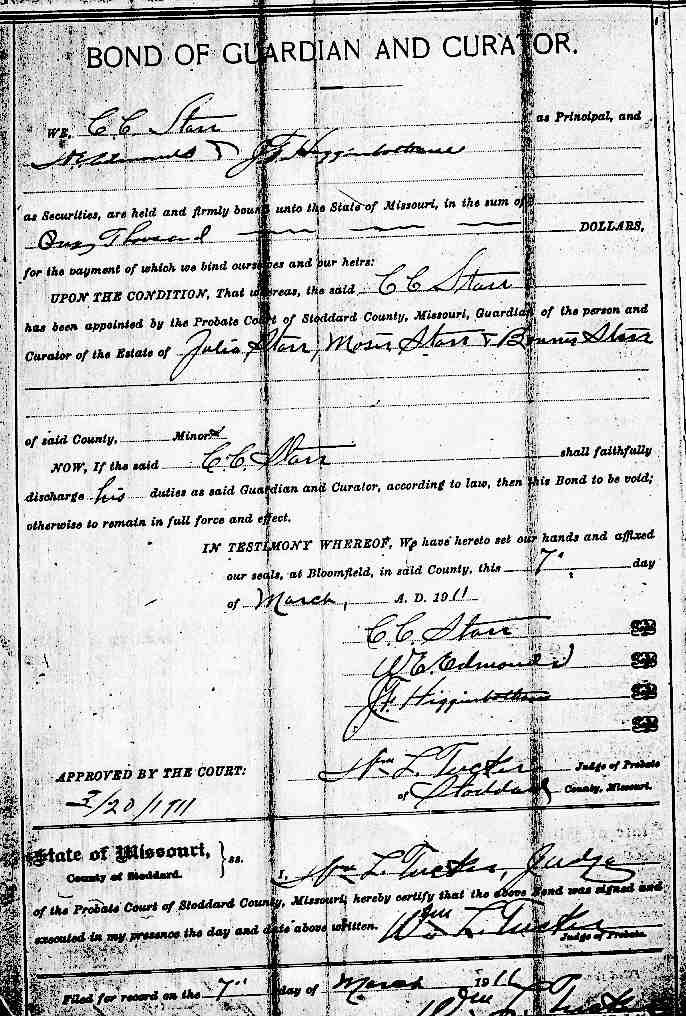 BOND OF GUARDIAN AND CURATOR.
WE, C C Starr as Principal, and
& J F Higginbotham
as Securities, are held and firmly bound unto the State of Missouri, in the sum of
One Thousand DOLLARS,
for the payment of which we bind ourselves and our heirs:
UPON THE CONDITION, That whereas, the said C C Starr
has been appointed by the Probate Court of Stoddard County, Missouri, Guardian of the person and
Curator of the Estate of Julia Starr, Moses Starr & Starr
of said County, Minors
NOW, If the said C. C. Starr shall faithfully
discharge his duties as said Guardian and Curator, according to law, then this Bond to be void;
otherwise to remain in full force and effect.
IN TESTIMONY WHEREOF, We have hereto set our hands and affixed
our seals, at Bloomfield, in said County, this 7" day
of March, A. D. 1911
C. C. Starr
W E. Edmonds
J. F. Higginbotham
APPROVED BY THE COURT: Wm L. Tucker Judge of Probate
3/20/1911 of Stoddard County, Missouri.
State of Missouri,
County of Stoddard. } ss. I, Wm L. Tucker, Judge
of the Probate Court of Stoddard County, Missouri, hereby certify that the above Bond was signed and
executed in my presence the day and date above written. Wm L. Tucker
Judge of Probate.
Filed for record on the 7" day of March 1911
Wm L. Tucker